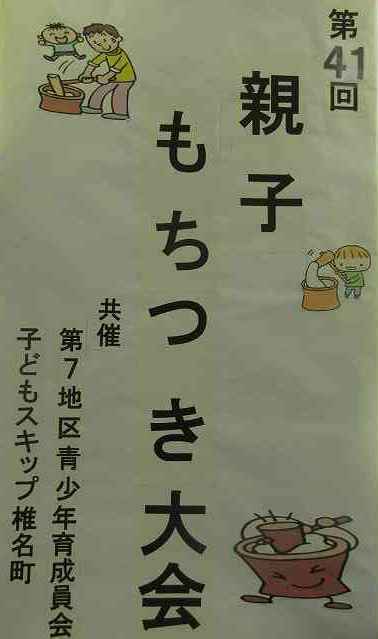 第41回
親子
もちつき大会
共催
第7地区青少年育成員会
子どもスキップ椎名町